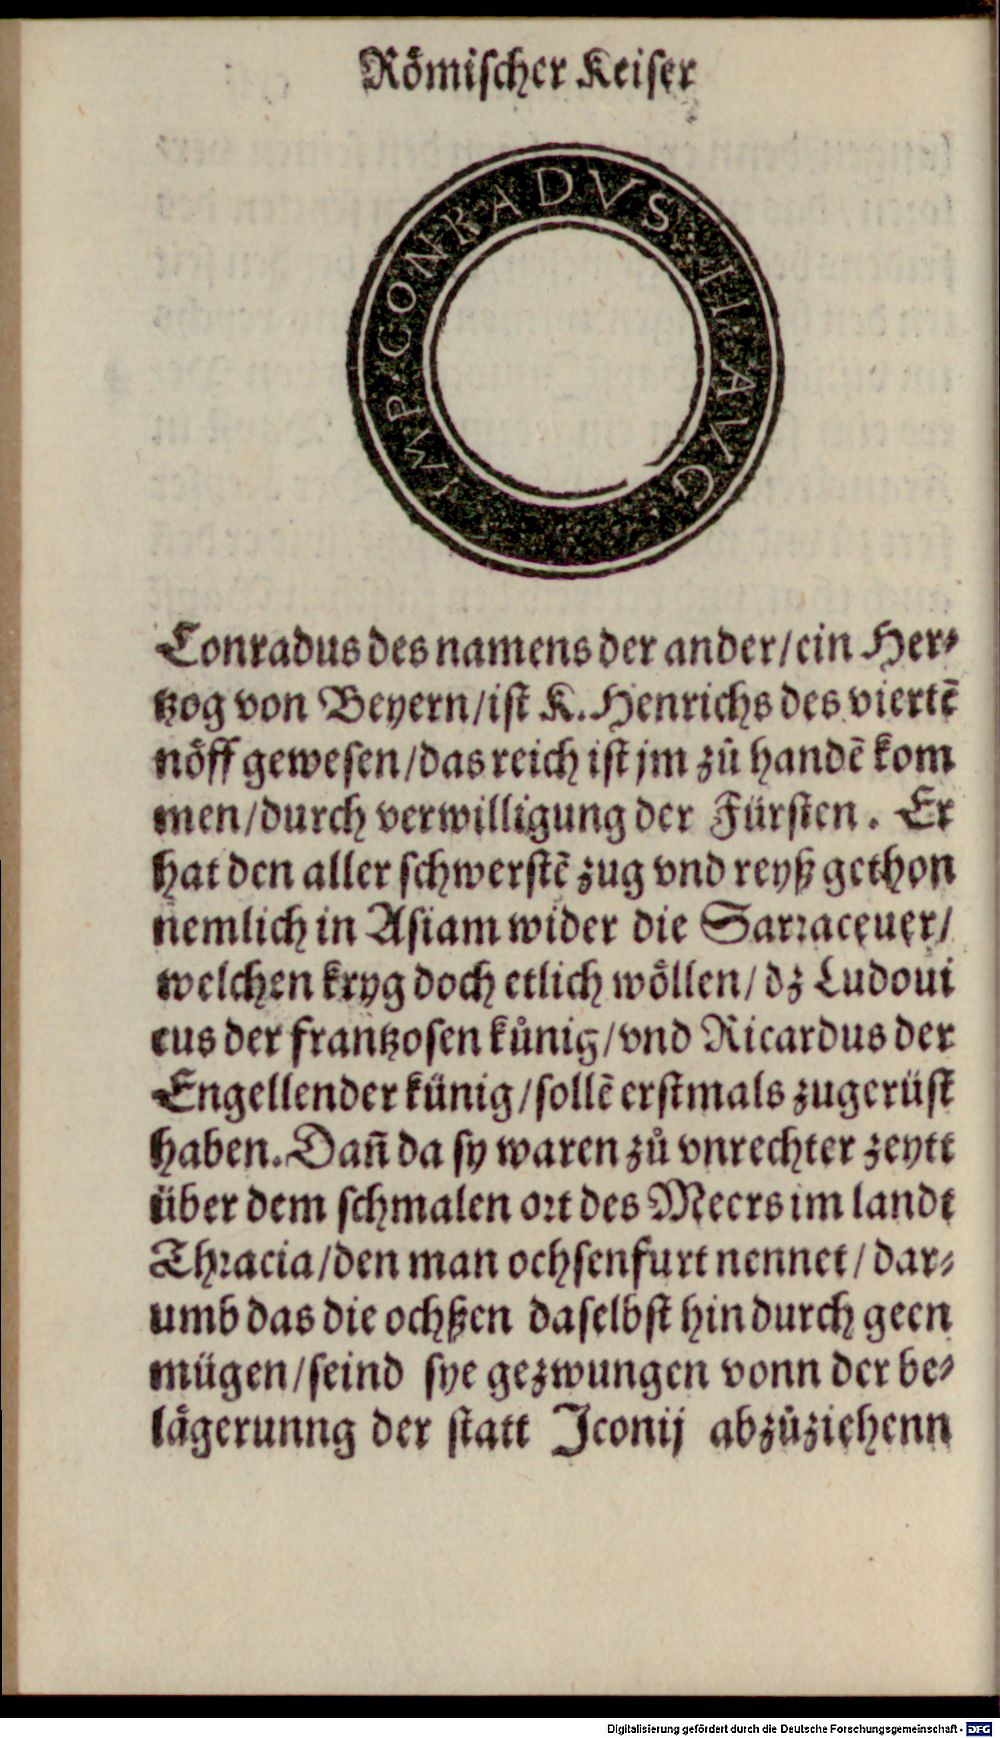 Römischer Keiser
IMP. CONRADVS. II. AVG
Conradus des namens der ander/ein Her⸗
tzog von Beyern/ist K. Henrichs des viertē
nöff gewesen/das reich ist jm zů handē kom
men/durch verwilligung der Fürsten. Er
hat den aller schwerstē zug vnd reyß gethon
nemlich in Asiam wider die Sarraceuer/
welchen kryg doch etlich wöllen/dz Ludoui
cus der frantzosen kůnig/vnd Ricardus der
Engellender künig/sollē erstmals zugerüst
haben. Dañ da sy waren zů vnrechter zeytt
über dem schmalen ort des Meers im landt
Thracia/den man ochsenfurt nennet/dar⸗
umb das die ochßen daselbst hindurch geen
mügen/seind sye gezwungen vonn der be⸗
lägerunng der statt Iconij abzůziehenn
Digitalisierung gefördert durch die Deutsche Forschungsgemeinschaft - DFG